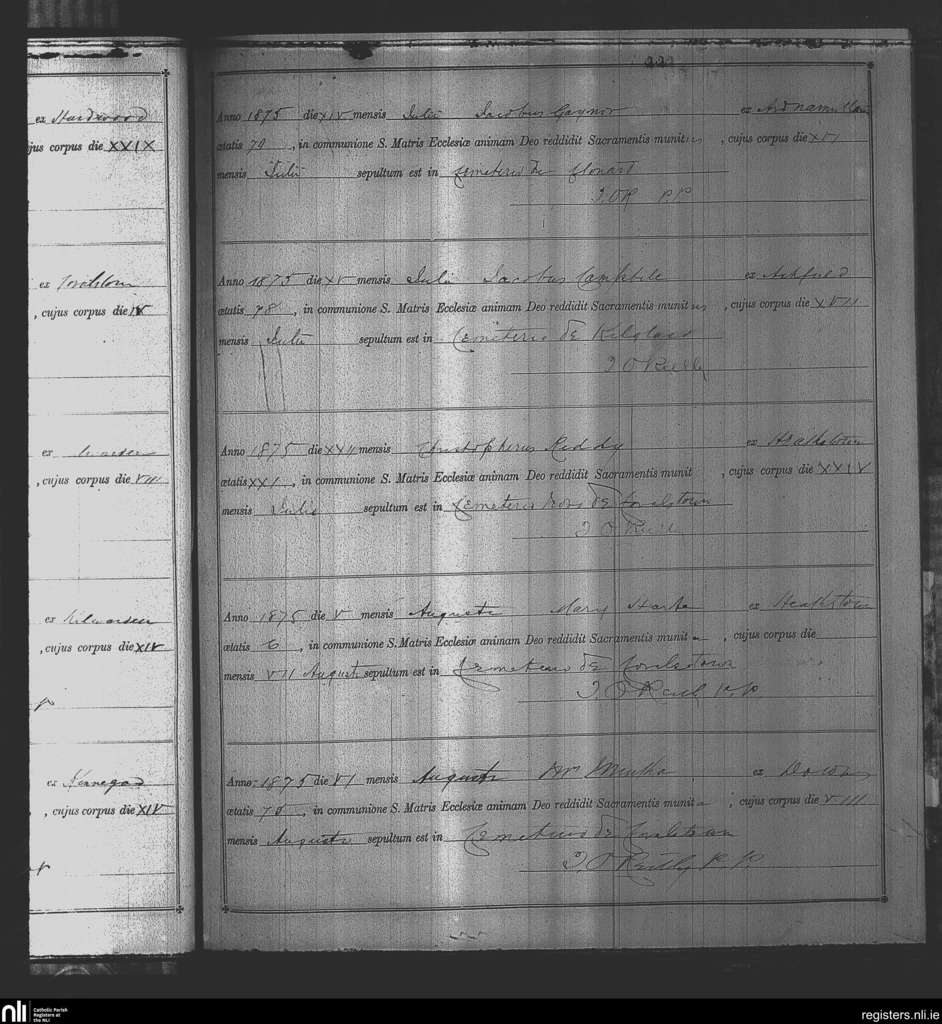 ex Hardwood
jus corpus die XXIX
ex
, cujus corpus die IV
ex
, cujus corpus die VIII
ex Kilwarden
, cujus corpus die XIV
ex Kinnegad
, cujus corpus die XIV
222
Anno 1875 die XIV mensis Julii Jacobus Gaynor ex Ardnamullan
ætatis 70, in communione S. Matris Ecclesiæ animam Deo reddidit Sacramentis munitus, cujus corpus die XVI
mensis Julii sepultum est in Cemeterio de Clonard
J.OR PP
Anno 1875 die XV mensis Julii Jacobus ex Ashfield
ætatis 78, in communione S. Matris Ecclesiæ animam Deo reddidit Sacramentis munitus, cujus corpus die XVII
mensis Julii sepultum est in Cemeterio de Kilglass
J O Reilly
Anno 1875 die XXII mensis Christopherus Reddy ex Heathstown
ætatis XXI, in communione S. Matris Ecclesiæ animam Deo reddidit Sacramentis munit , cujus corpus die XXIV
mensis Julii sepultum est in Cemeterio de
J O Reilly
Anno 1875 die V mensis Augusti Mary Harte ex Heathstown
ætatis 6, in communione S. Matris Ecclesiæ animam Deo reddidit Sacramentis munita , cujus corpus die
mensis VII Augusti sepultum est in Cemeterio de
J O Reilly P.P
Anno 1875 die VI mensis Augusti ex
ætatis 70, in communione S. Matris Ecclesiæ animam Deo reddidit Sacramentis munita , cujus corpus die VIII
mensis Augusti sepultum est in Cemeterio de
J. O Reilly P. P.
nli Catholic Parish
Registers at
the NLI
registers.nli.ie